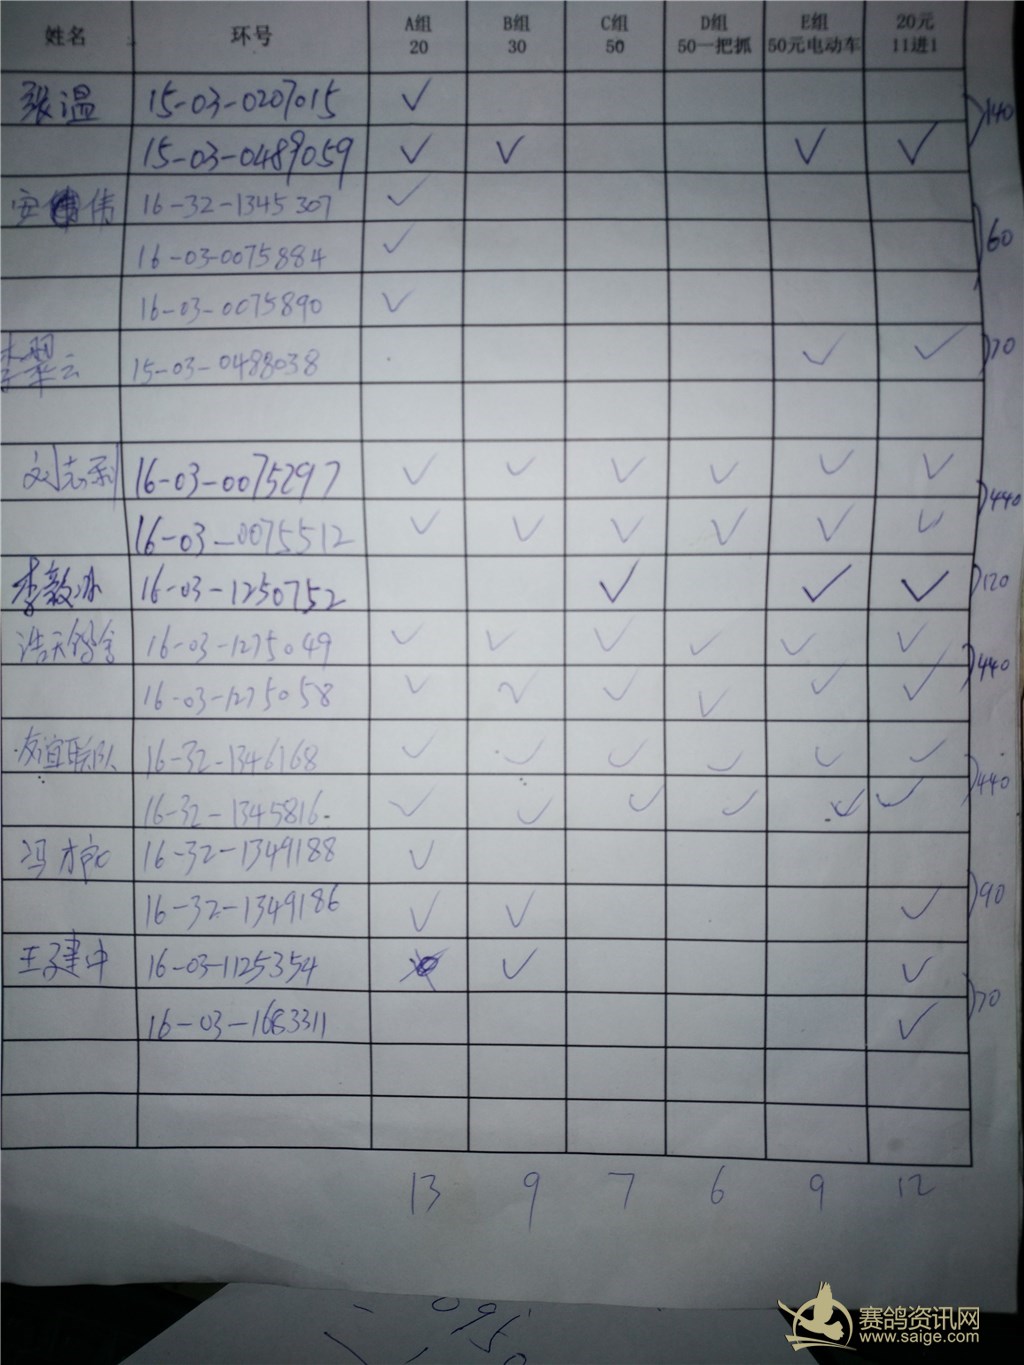 姓名 环号 A组 20 B组 30 C组 50 D组 50一把抓 E组 50元电动车 20元 11进1
张温 15-03-0207015 ✓ 140
15-03-0489059 ✓ ✓ ✓ ✓
安伟 16-32-1345307 ✓ 60
16-03-0075884 ✓
16-03-0075890 ✓
李翠云 15-03-0488038 ✓ ✓ 70
刘志刚 16-03-0075297 ✓ ✓ ✓ ✓ ✓ ✓ 440
16-03-0075512 ✓ ✓ ✓ ✓ ✓ ✓
李毅冰 16-03-1250752 ✓ ✓ ✓ 120
浩天鸽舍 16-03-1275049 ✓ ✓ ✓ ✓ ✓ ✓ 440
16-03-1275058 ✓ ✓ ✓ ✓ ✓ ✓
友谊联队 16-32-1346168 ✓ ✓ ✓ ✓ ✓ ✓ 440
16-32-1345816. ✓ ✓ ✓ ✓ ✓ ✓
冯 16-32-1349188 ✓ 90
16-32-1349186 ✓ ✓ ✓
王建中 16-03-1125354 ✓ ✓ 70
16-03-1683311 ✓
13 9 7 6 9 12
赛鸽资讯网
www.saige.com